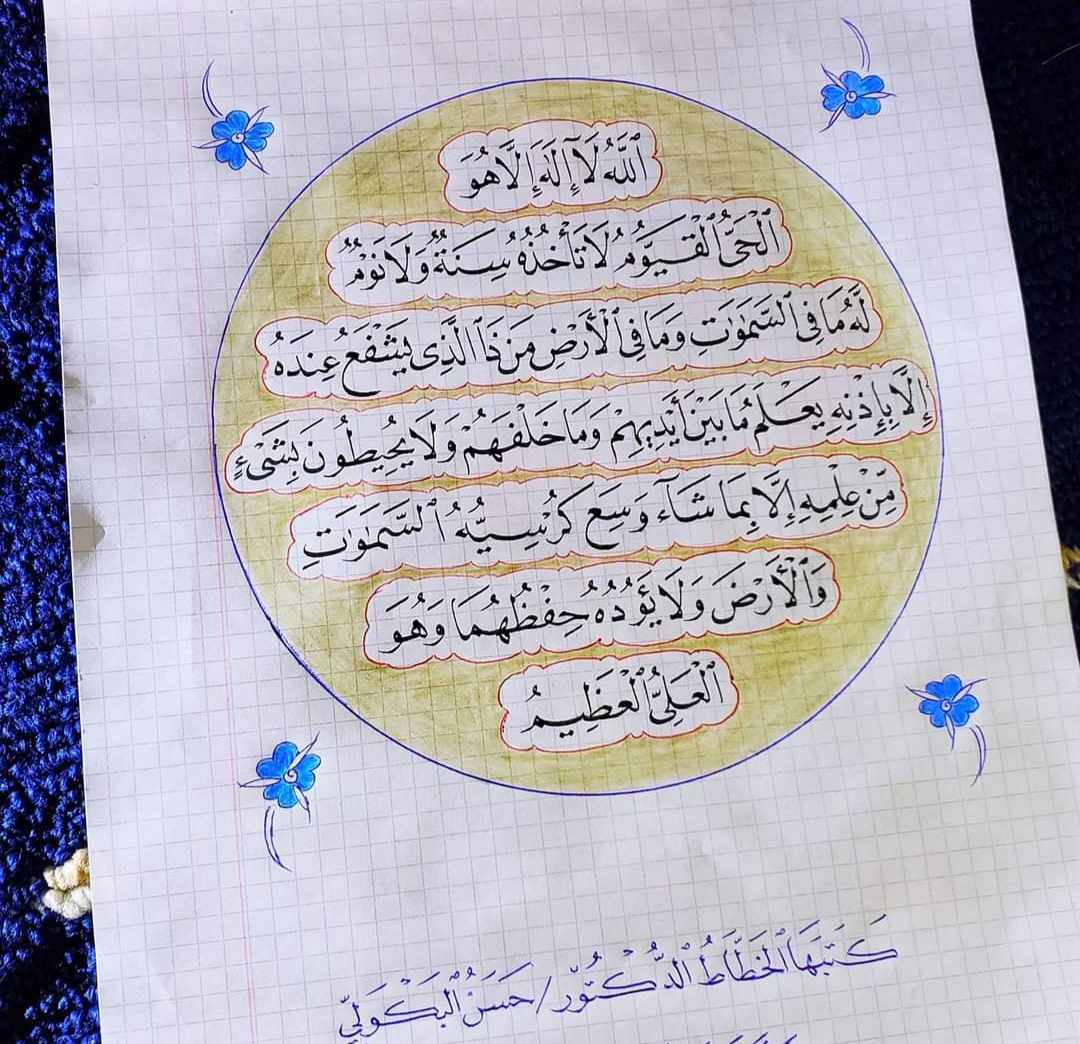 ٱللَّهُ لَآ إِلَٰهَ إِلَّا هُوَ
ٱلْحَىُّ ٱلْقَيُّومُ لَا تَأْخُذُهُ سِنَةٌ وَلَا نَوْمٌ
لَّهُ مَا فِى ٱلسَّمَٰوَٰتِ وَمَا فِى ٱلْأَرْضِ مَن ذَا ٱلَّذِى يَشْفَعُ عِندَهُ
إِلَّا بِإِذْنِهِ يَعْلَمُ مَا بَيْنَ أَيْدِيهِمْ وَمَا خَلْفَهُمْ وَلَا يُحِيطُونَ بِشَىْءٍ
مِّنْ عِلْمِهِ إِلَّا بِمَا شَآءَ وَسِعَ كُرْسِيُّهُ ٱلسَّمَٰوَٰتِ
وَٱلْأَرْضَ وَلَا يَؤُدُهُ حِفْظُهُمَا وَهُوَ
ٱلْعَلِىُّ ٱلْعَظِيمُ
كَتَبَهَا ٱلْخَطَّاطُ ٱلدُّكْتُوّر / حَسَنُ ٱلْبَكَوْلِيّ